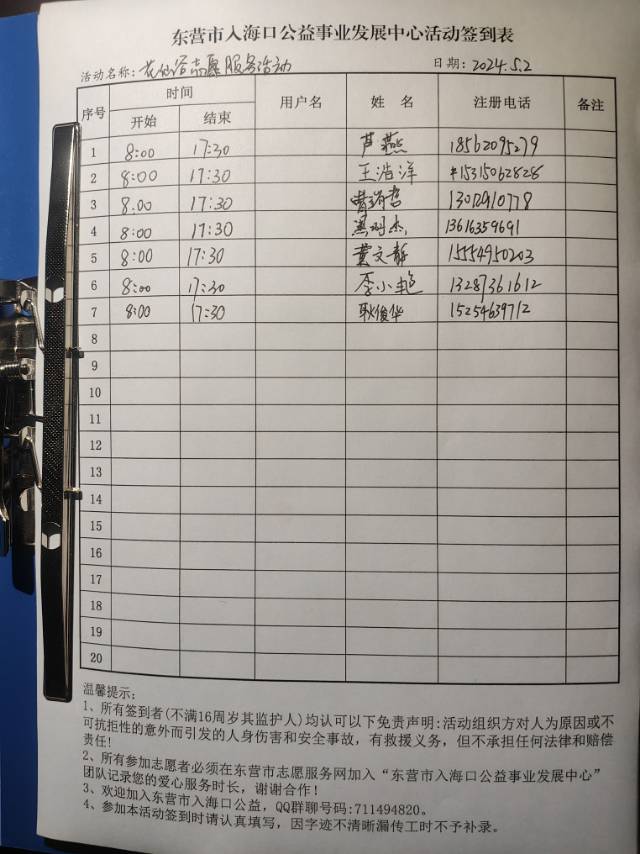 东营市入海口公益事业发展中心活动签到表
活动名称：花的谷志愿服务活动 日期：2024.5.2
序号 时间 用户名 姓 名 注册电话 备注
开始 结束
1 8:00 17:30 芦燕 18562095279
2 8:00 17:30 王浩洋 15315062828
3 8.00 17:30
4 8:00 17:30 13616359691
5 8:00 17:30 黄文静 15554950203
6 8:00 17:30 李小艳 13287361612
7 8:00 17:30 耿俊华 15254639712
8
9
10
11
12
13
14
15
16
17
18
19
20
温馨提示：
1、所有签到者(不满16周岁其监护人)均认可以下免责声明：活动组织方对人为原因或不
可抗拒性的意外而引发的人身伤害和安全事故，有救援义务，但不承担任何法律和赔偿
责任！
2、所有参加志愿者必须在东营市志愿服务网加入“东营市入海口公益事业发展中心”
团队记录您的爱心服务时长，谢谢合作！
3、欢迎加入东营市入海口公益，QQ群聊号码：711494820。
4、参加本活动签到时请认真填写，因字迹不清晰漏传工时不予补录。